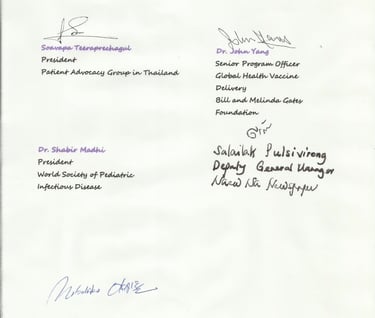 Soavapa Teeraprechagul
President
Patient Advocacy Group in Thailand
Dr. John Yang
Senior Program Officer
Global Health Vaccine
Delivery
Bill and Melinda Gates
Foundation
Dr. Shabir Madhi
President
World Society of Pediatric
Infectious Disease
Deputy General Manager
Newspaper